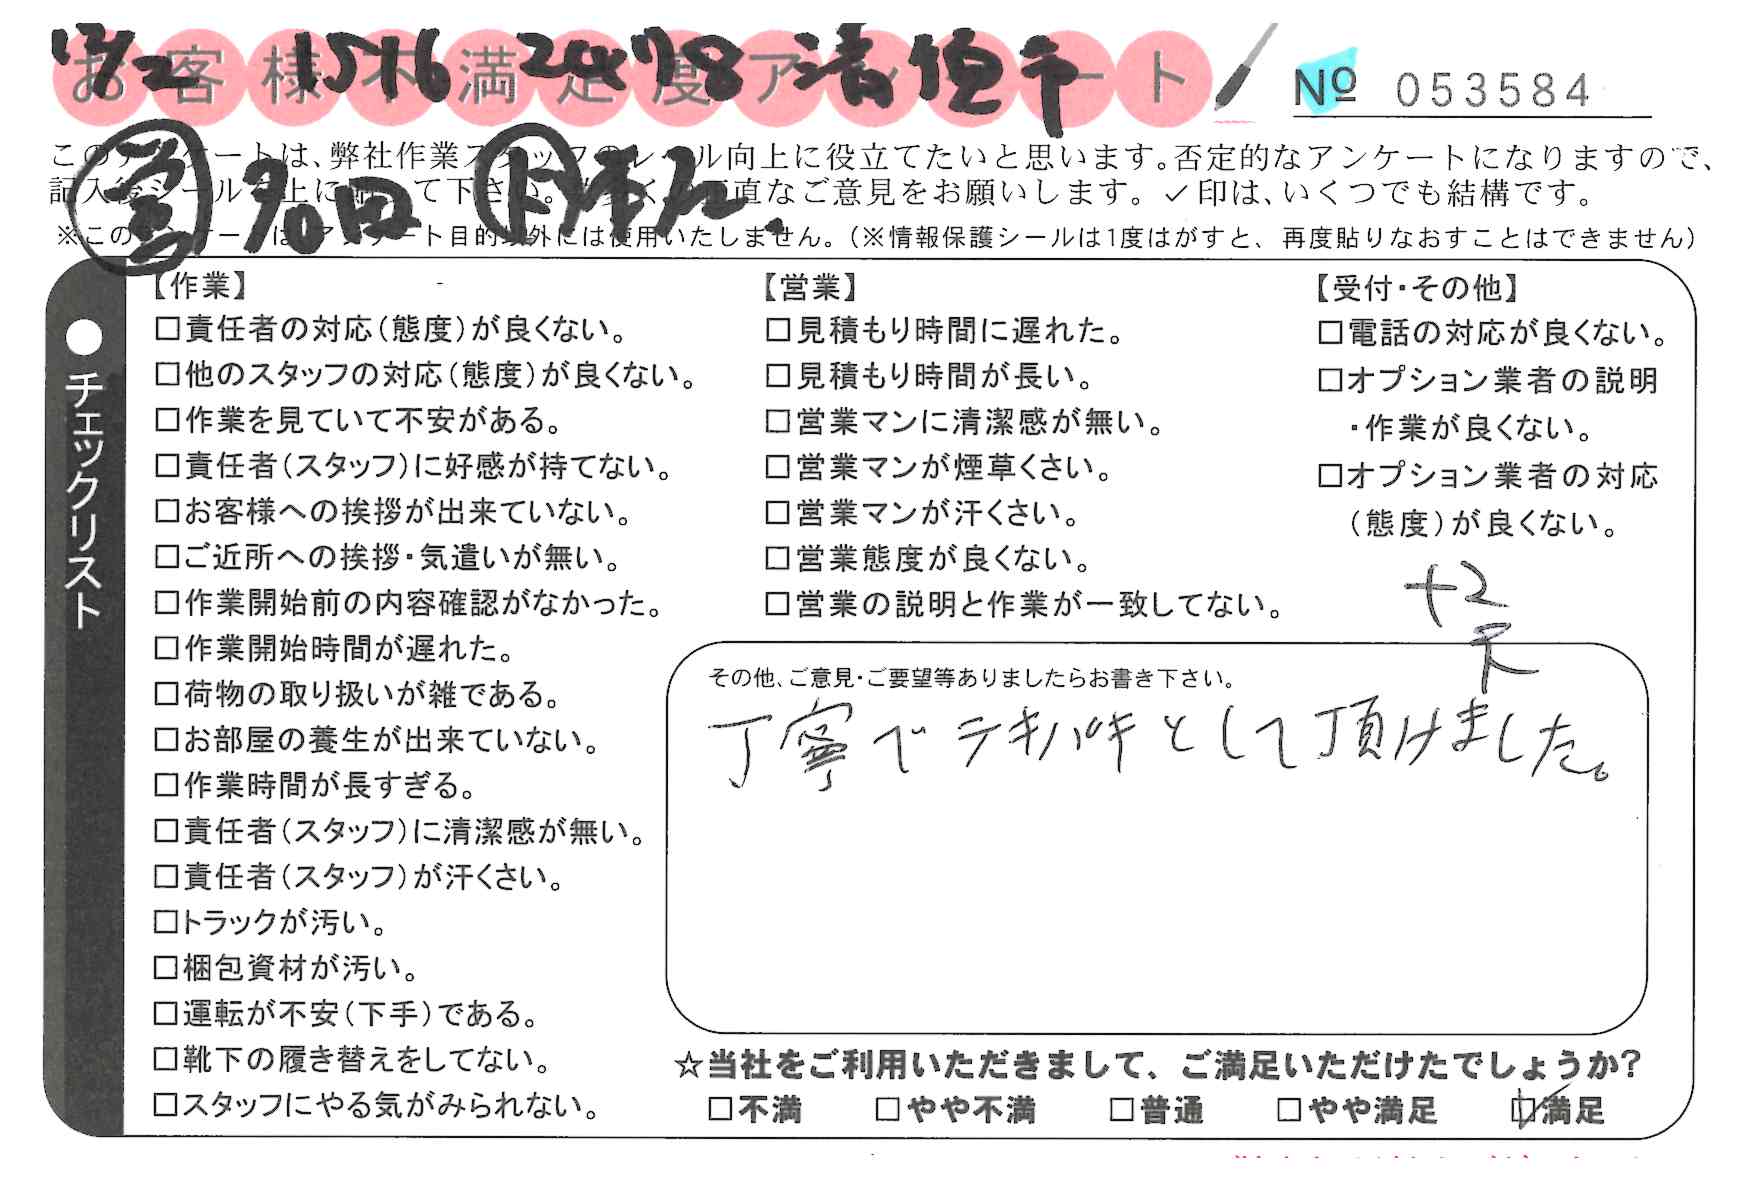 お客様不満足度アンケート
12/2 1576 2478 清但市
№ 053584
このアンケートは、弊社作業スタッフのレベル向上に役立てたいと思います。否定的なアンケートになりますので、
記入後シールを上に貼って下さい。数多くの正直なご意見をお願いします。✓印は、いくつでも結構です。
営
※このアンケートは、アンケート目的以外には使用いたしません。(※情報保護シールは1度はがすと、再度貼りなおすことはできません)
●チェックリスト
【作業】
□責任者の対応(態度)が良くない。
□他のスタッフの対応(態度)が良くない。
□作業を見ていて不安がある。
□責任者(スタッフ)に好感が持てない。
□お客様への挨拶が出来ていない。
□ご近所への挨拶・気遣いが無い。
□作業開始前の内容確認がなかった。
□作業開始時間が遅れた。
□荷物の取り扱いが雑である。
□お部屋の養生が出来ていない。
□作業時間が長すぎる。
□責任者(スタッフ)に清潔感が無い。
□責任者(スタッフ)が汗くさい。
□トラックが汚い。
□梱包資材が汚い。
□運転が不安(下手)である。
□靴下の履き替えをしてない。
□スタッフにやる気がみられない。
【営業】
□見積もり時間に遅れた。
□見積もり時間が長い。
□営業マンに清潔感が無い。
□営業マンが煙草くさい。
□営業マンが汗くさい。
□営業態度が良くない。
□営業の説明と作業が一致してない。
【受付・その他】
□電話の対応が良くない。
□オプション業者の説明
・作業が良くない。
□オプション業者の対応
(態度)が良くない。
+2
その他、ご意見・ご要望等ありましたらお書き下さい。
丁寧でテキパキとして頂けました。
☆当社をご利用いただきまして、ご満足いただけたでしょうか?
□不満 □やや不満 □普通 □やや満足 ☑満足